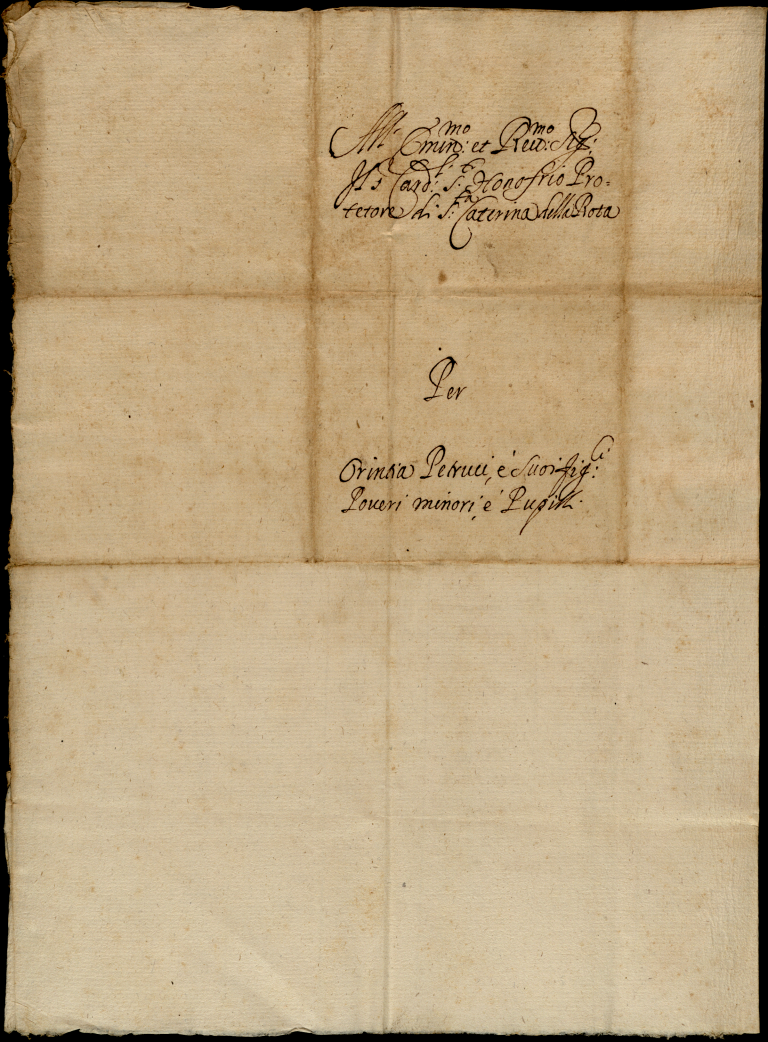 All' Emin:mo et Reu:mo Sig:
Il S: Card:l S:t Honofrio Pro-
tetore di S:ta Caterina della Rota
Per
Orintia Petruci, è suoi fig:li
Poueri minori, è Pupilli.